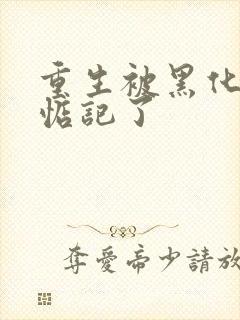 重生被黑化
惦記了
奪愛帝少請放